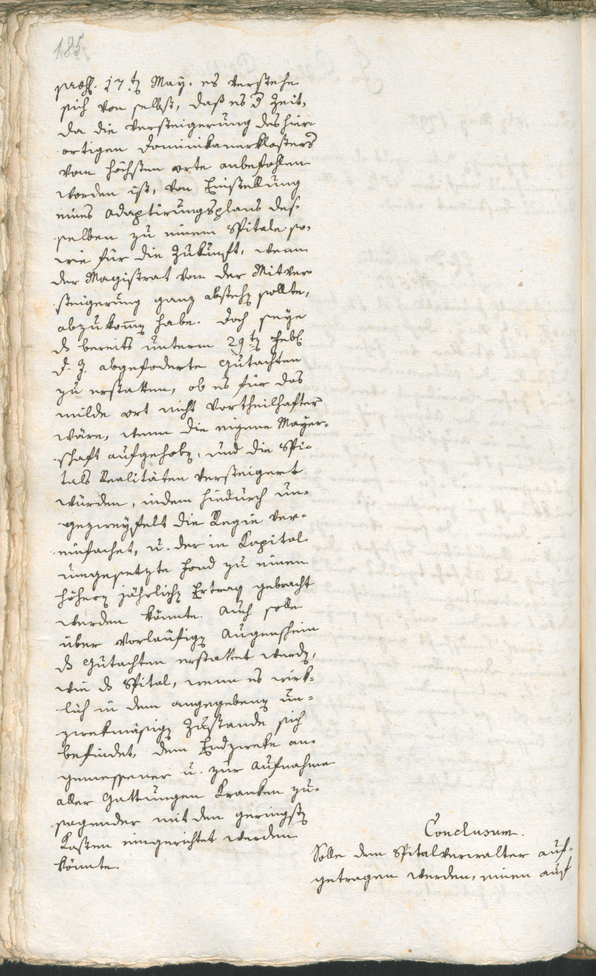 185.
praes. 17ten May. es verstehe
sich von selbst, daß es d Zeit,
da die Versteigerung des hier
ortigen Dominikanerklosters
vom höchsten orte anbefohlen
worden ist, von Einstellung
eines Adaptirungsplans des-
selben zu einem Spitale so,
wie für die Zukunft, wenn
der Magistrat von der Mitver
steigerung ganz abstehen sollte,
abzukomen habe. Doch seye
ds bereits unterm 29ten Febr.
d. J. abgefoderte Gutachten
zu erstatten, ob es für das
milde ort nicht vortheilhafter
wäre, wenn die eigene Mayer-
schaft aufgehoben, und die Spi-
tals Realitäten versteigert
würden, indem hiedurch un-
gezweyfelt die Regie ver-
einfachet, u. der in Kapital
umgesetzte Fond zu einem
höhern jährlichen Ertrag gebracht
werden könnte. Auch solle
über vorläufigen Augenschein
ds Gutachten erstattet werden,
wie ds Spital, wenn es wirk-
lich in dem angegebenen un-
zwekmäsigen Zustande sich
befindet, dem Endzweke an-
gemessener u. zur Aufnahme
aller Gattungen Kranken zu-
sagender mit den geringsten
Kosten eingerichtet werden
könnte.
Conclusum.
Solle dem Spitalverwalter auf-
getragen werden, einen auf